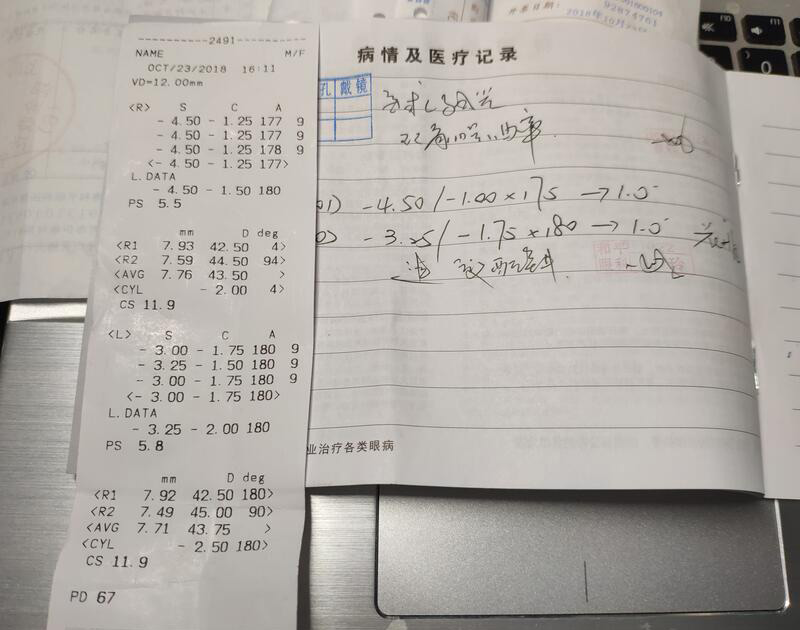 -----------2491-----------
NAME M/F
OCT/23/2018 16:11
VD=12.00mm
<R> S C A
- 4.50 - 1.25 177 9
- 4.50 - 1.25 177 9
- 4.50 - 1.25 178 9
<- 4.50 - 1.25 177>
L.DATA
- 4.50 - 1.50 180
PS 5.5
mm D deg
<R1 7.93 42.50 4>
<R2 7.59 44.50 94>
<AVG 7.76 43.50 >
<CYL - 2.00 4>
CS 11.9
<L> S C A
- 3.00 - 1.75 180 9
- 3.25 - 1.50 180 9
- 3.00 - 1.75 180 9
<- 3.00 - 1.75 180>
L.DATA
- 3.25 - 2.00 180
PS 5.8
mm D deg
<R1 7.92 42.50 180>
<R2 7.49 45.00 90>
<AVG 7.71 43.75 >
<CYL - 2.50 180>
CS 11.9
PD 67
92874761
2018年10月
病情及医疗记录
孔 戴镜
-4.50/-1.00×175→1.0
-3.25/-1.75×180→1.0
业治疗各类眼病
F10
F11